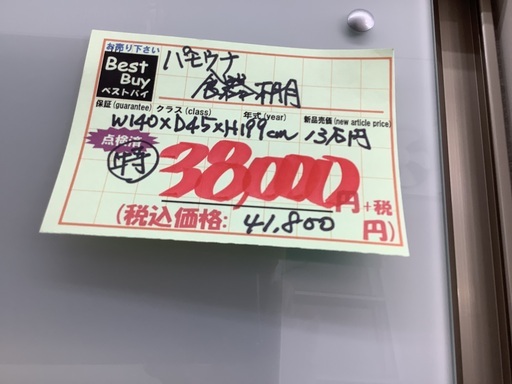 お売り下さい
Best Buy
ベストバイ
パモウナ
食器棚
保証(guarantee) クラス(class) 年式(year) 新品売価(new article price)
W140×D45×H199cm 13万円
点検済
特 38,000円+税
(税込価格: 41,800円)